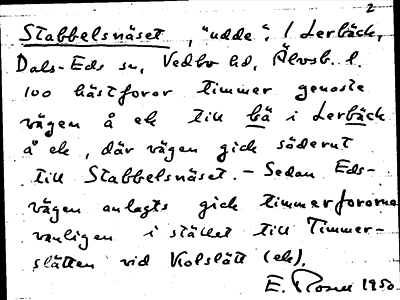 2
Stabbelsnäset, "udde", i Lerbäck,
Dals-Eds sn, Vedbo hd, Älvsb. l.
100 hästforor timmer genaste
vägen å ek till bä i Lerbäck
å ek, där vägen gick söderut
till Stabbelsnäset. – Sedan Eds-
vägen anlagts gick timmerfororna
vanligen i stället till Timmer-
slätten vid Kolslätt (ek).
E. Rosell 1950